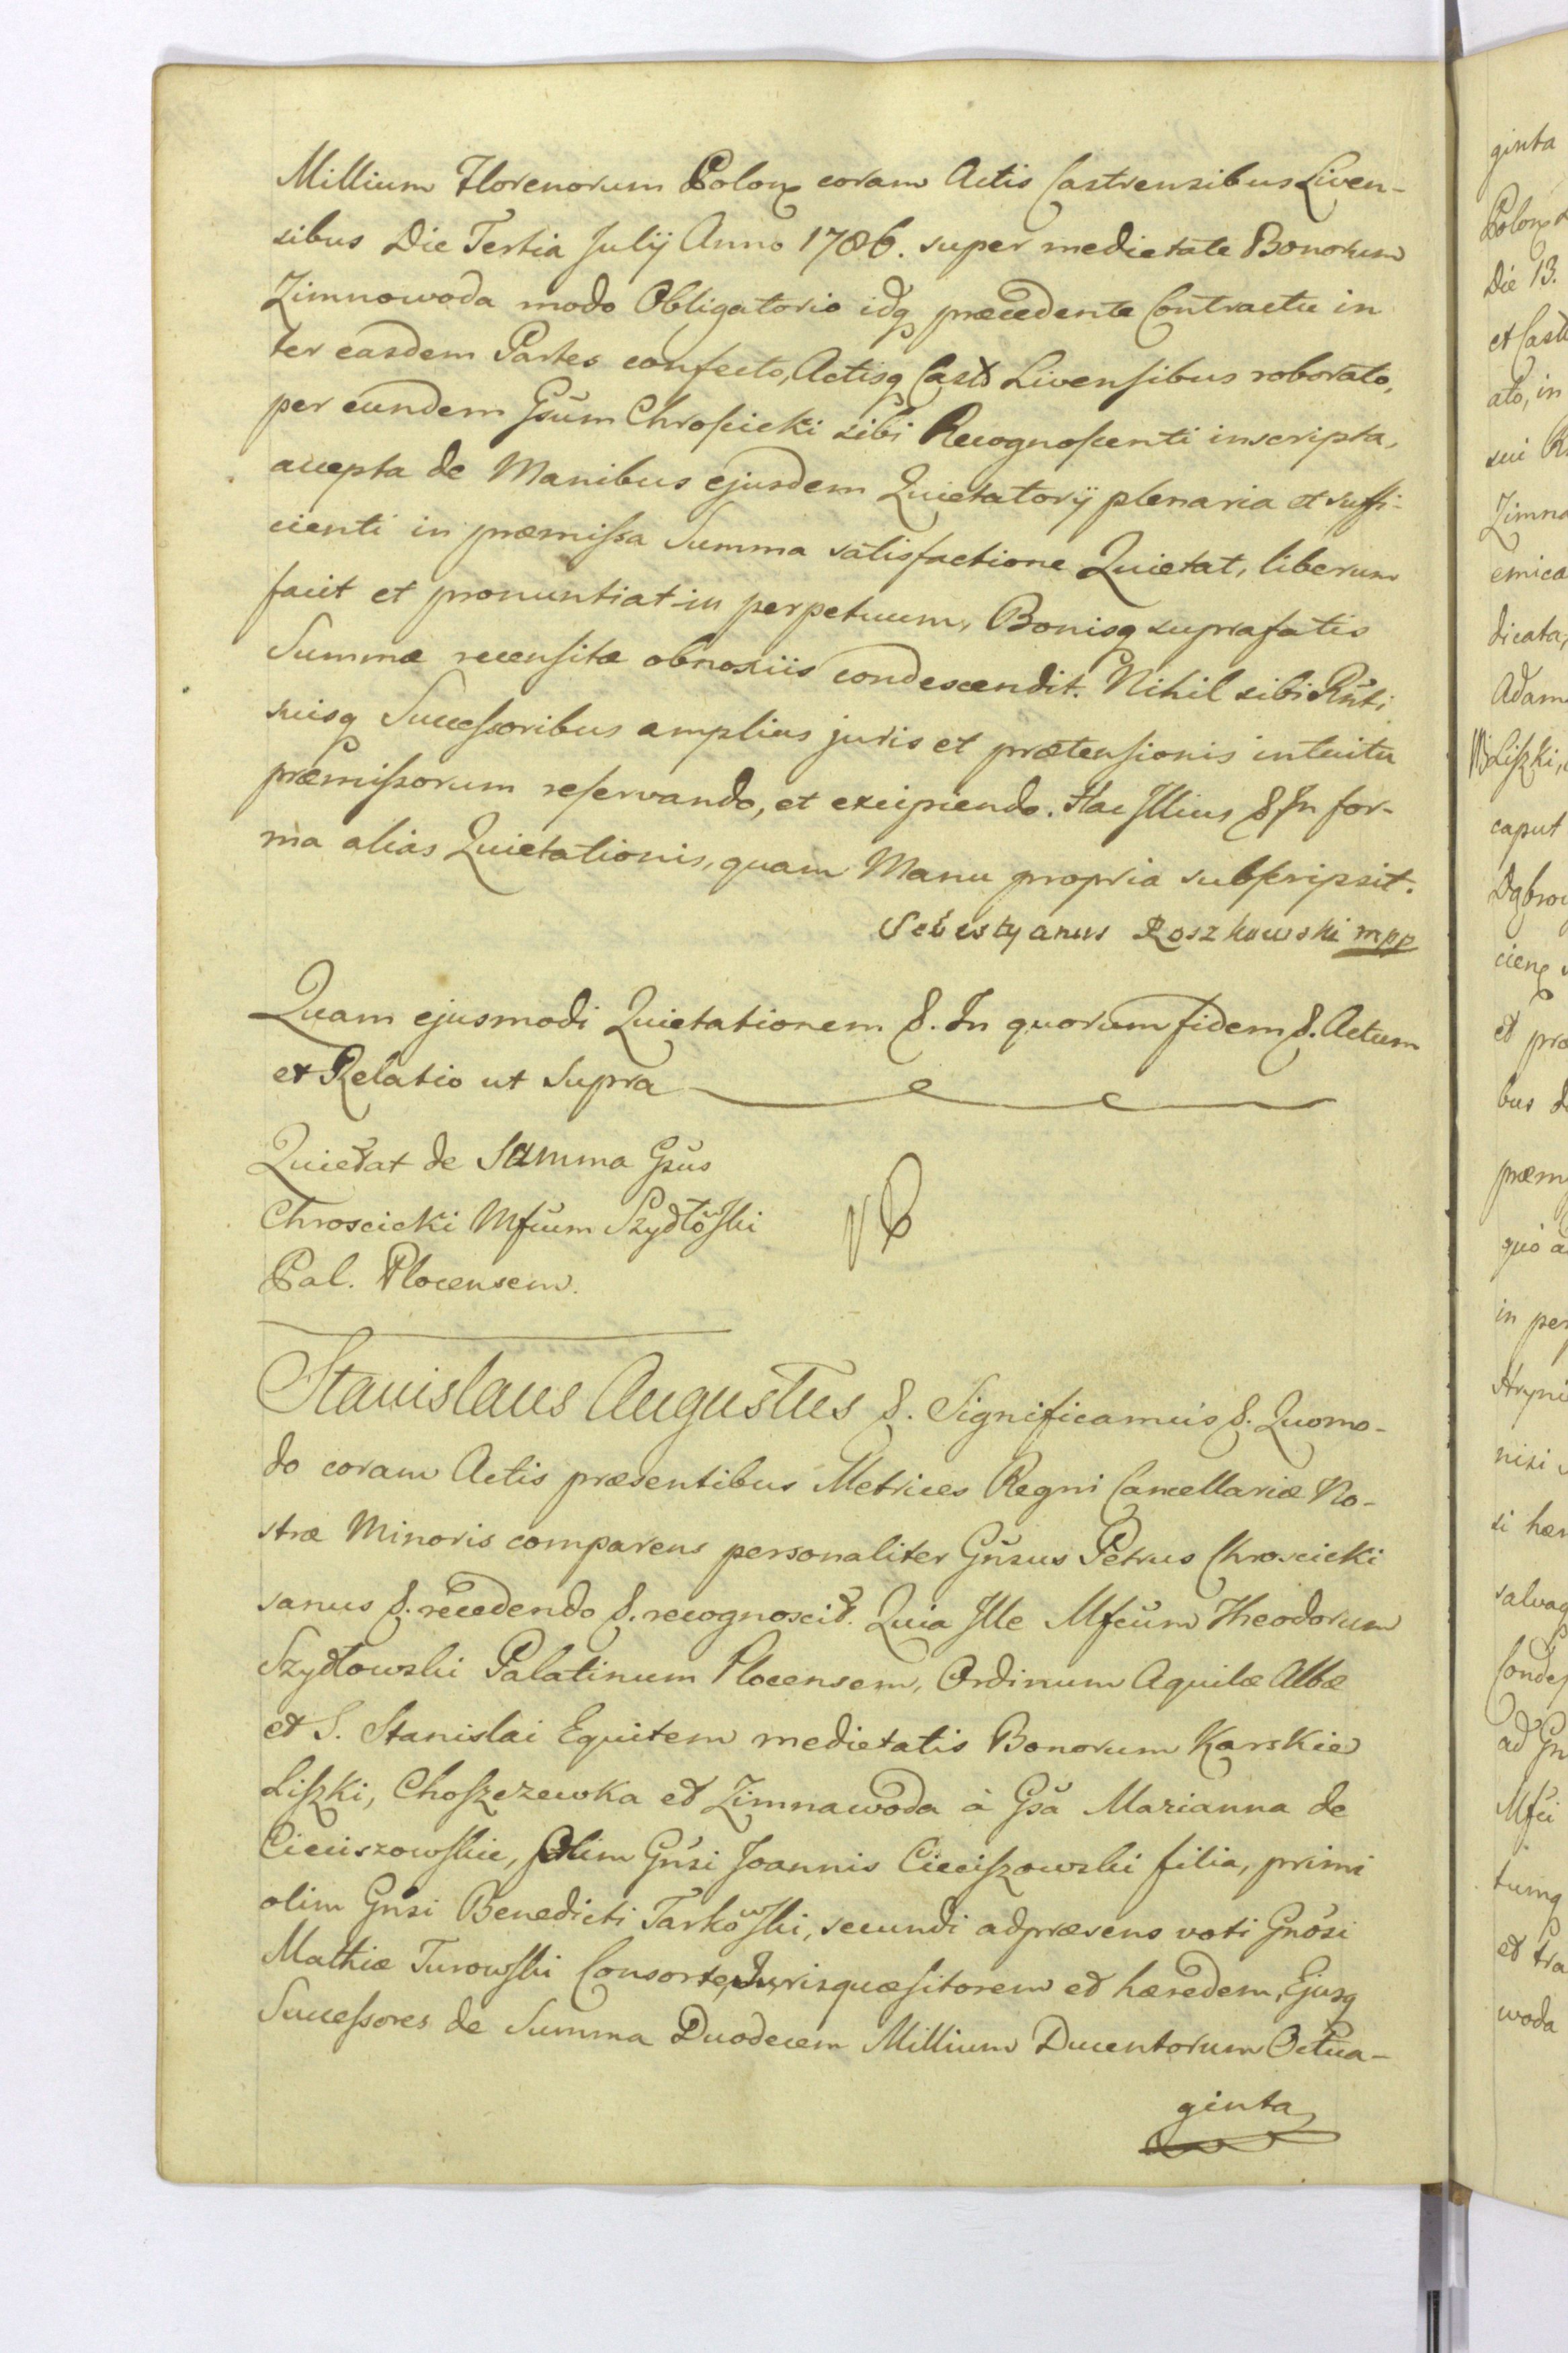 Millium Florenorum Polon coram Actis Castrensibus Liven-
sibus Die Tertia Julij Anno 1786. super medietate Bonorum
Zimnowoda modo Obligatorio idq præcedente Contractu in
ter easdem Partes confecto, Actisq Castr Livensibus roborato,
per eundem Gsum Chroscicki sibi Recognoscenti inscripta,
accepta de Manibus ejusdem Quietatorij plenaria et suffi-
cienti in præmissa Summa satisfactione Quietat, liberum
facit et pronuntiat in perpetuum, Bonisq suprafatis
Summæ recensitæ obnoxiis condescendit. Nihil sibi Rnti
suisq Successoribus amplius juris et prætensionis intuitu
præmissorum reservando, et excipiendo. Hac Illius & In for-
ma alias Quietationis, quam Manu propria subscripsit.
Sebestyanus Roszkowski mpp
Quam ejusmodi Quietationem &. In quorum fidem &. Actum
et Relatio ut Supra
Quietat de Summa Gsus
Chroscicki Mfcum Szydłowski
Pal. Plocensem.
NB
Stanislaus Augustus &. Significamus &. Quomo-
do coram Actis præsentibus Metrices Regni Cancellariæ No-
stræ Minoris comparens personaliter Gnsus Petrus Chroscicki
sanus &. recedendo &. recognoscit. Quia Ille Mfcum Theodorum
Szydłowski Palatinum Plocensem, Ordinum Aquilæ Albæ
et S. Stanislai Equitem medietatis Bonorum Karskie
Liszki, Choszczewka et Zimnawoda à Gsa Marianna de
Cieciszowskie, olim Gnsi Joannis Cieciszowski filia, primi
olim Gnsi Benedicti Tarkowski, secundi adpræsens voti Gnosi
Mathiæ Turowski Consorte, Jurisquæsitorem et hæredem, Ejusq
Successores de Summa Duodecem Millium Ducentorum Octua-
ginta
ginta
Polon
Die 13.
et Cast
ato, in
sui
Zimno
emica
dicata,
Adam
NB Liszki,
caput
Dąbrow
cien
et præ
bus
præm
quo a
in per
nisi
si hær
salvaq
Condes
ad Gn
Mfci
tumq
et tra
woda